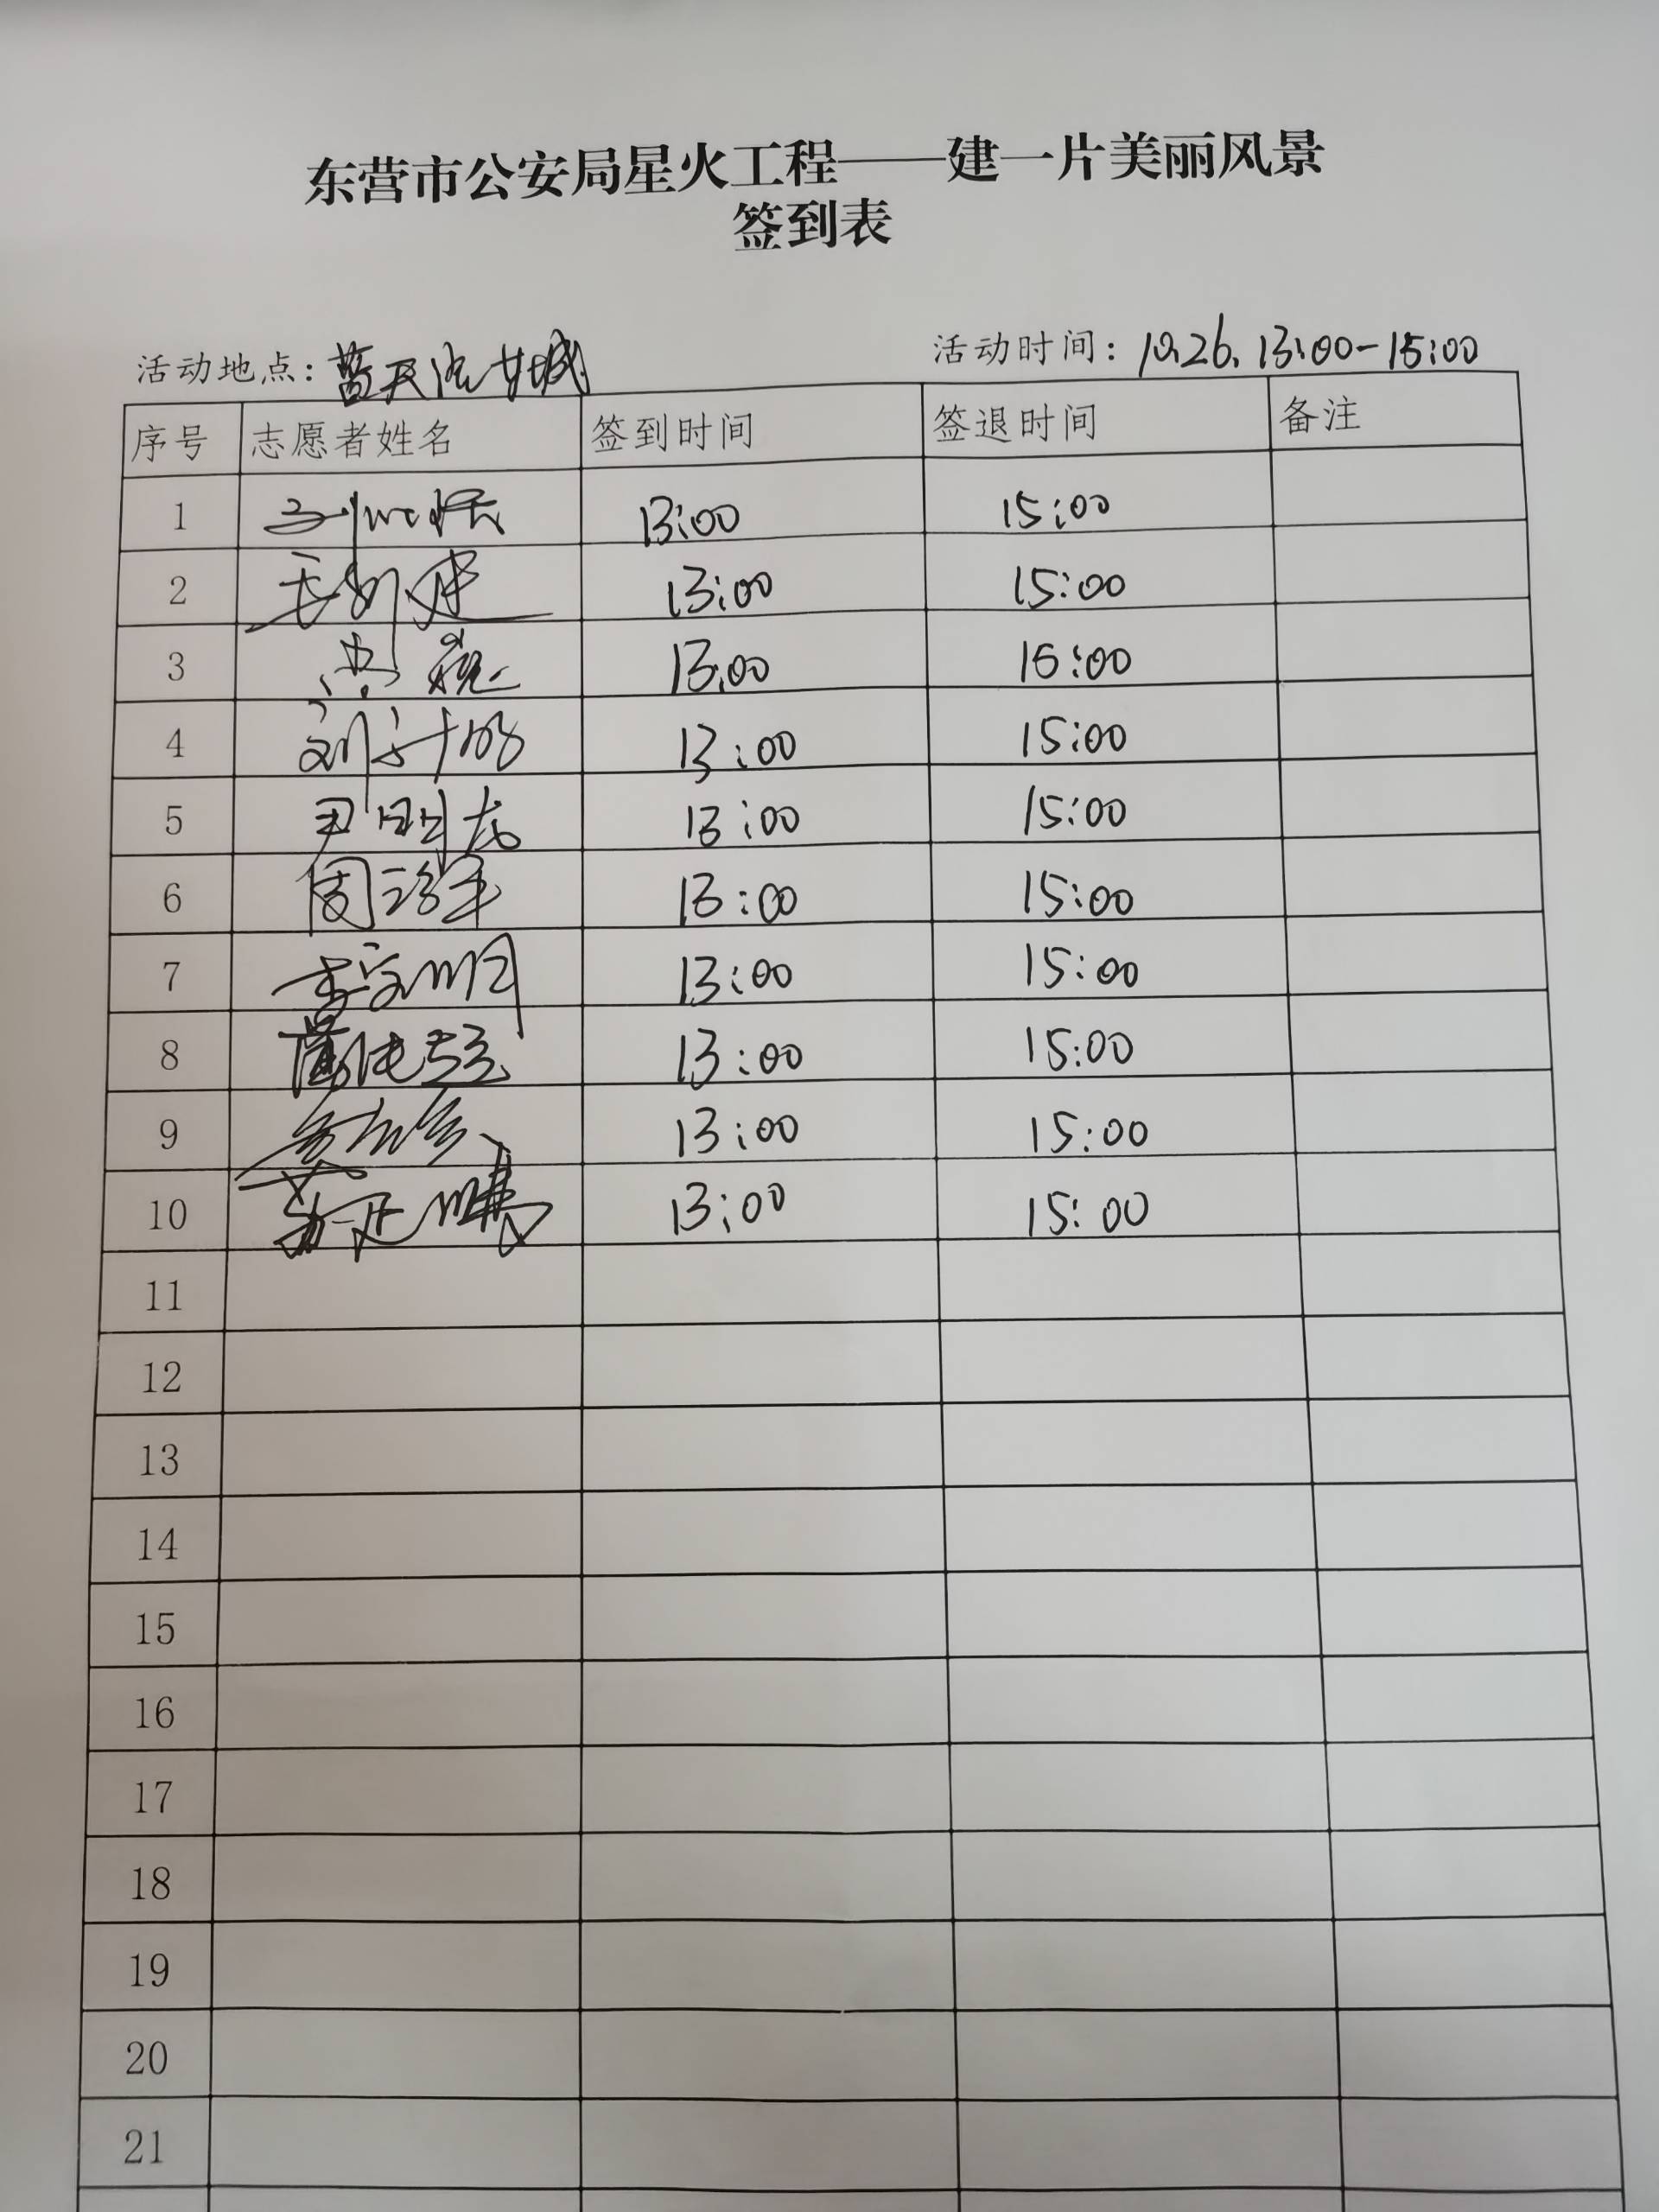 东营市公安局星火工程——建一片美丽风景
签到表
活动地点：蓝天 城 活动时间：10.26. 13:00-15:00
序号 志愿者姓名 签到时间 签退时间 备注
1 13:00 15:00
2 13:00 15:00
3 13:00 15:00
4 刘 13:00 15:00
5 尹明龙 13:00 15:00
6 周 13:00 15:00
7 李 明 13:00 15:00
8 13:00 15:00
9 13:00 15:00
10 13:00 15:00
11
12
13
14
15
16
17
18
19
20
21